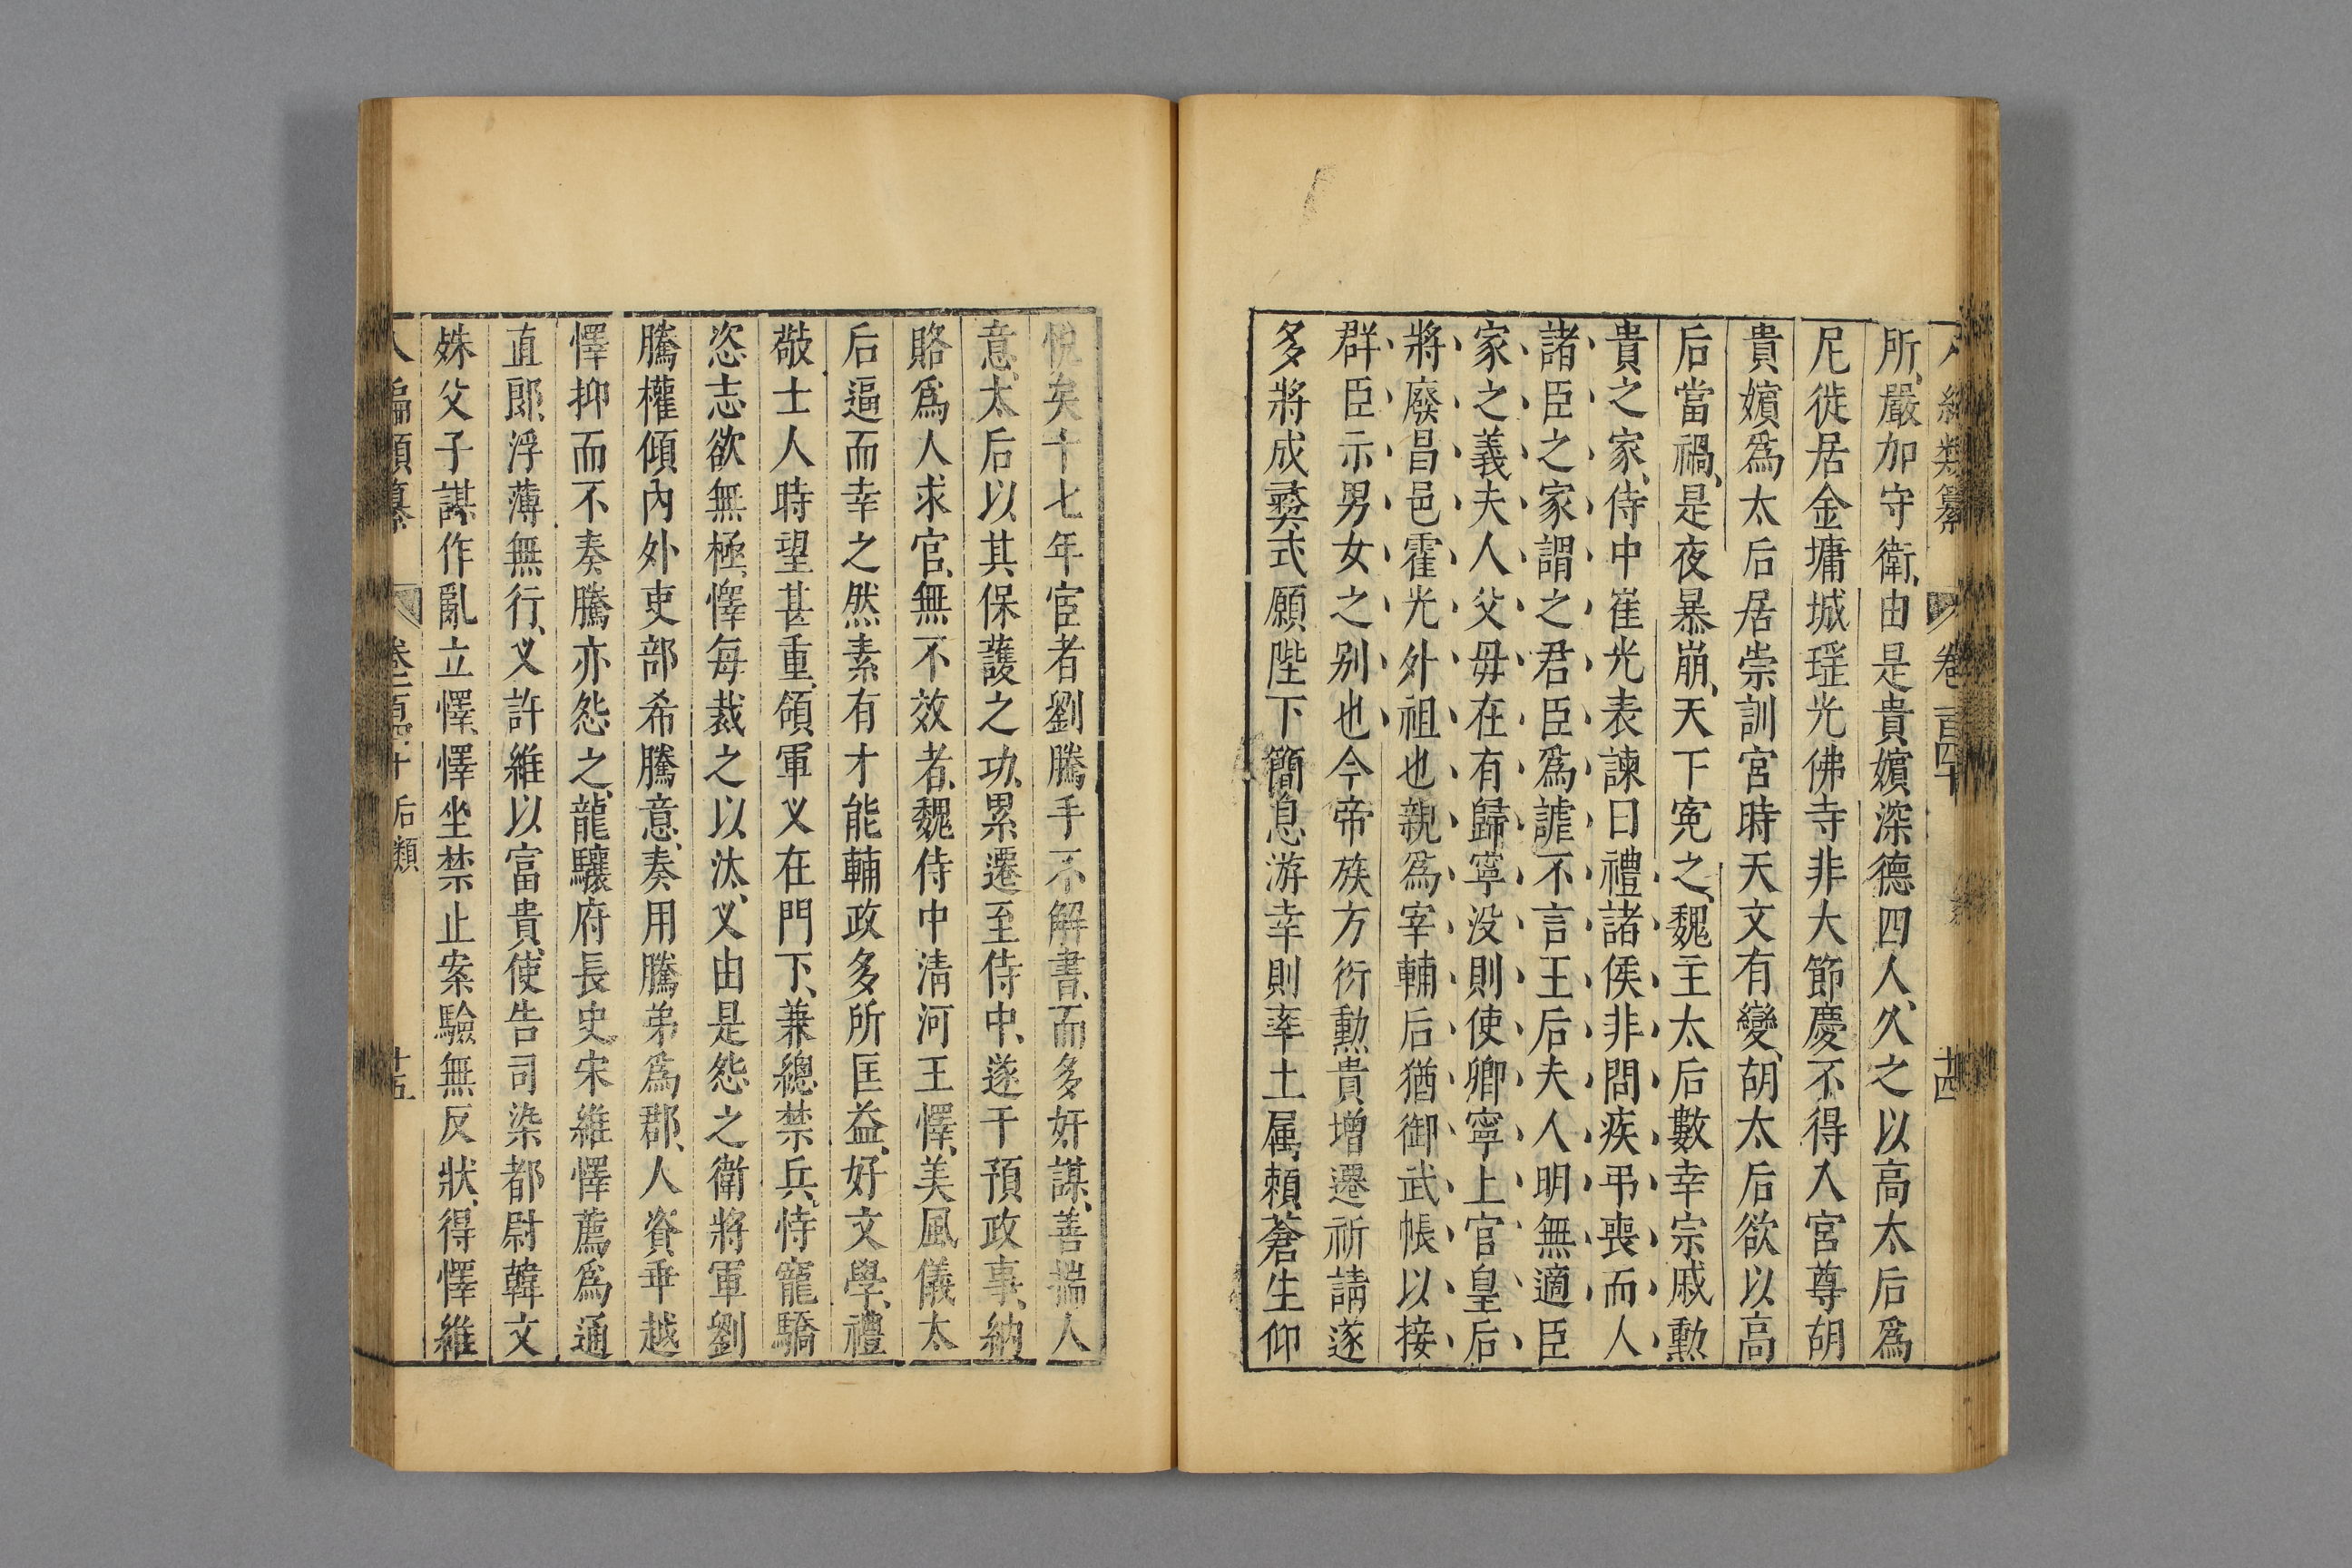 所嚴加守衛由是貴嬪深德四人久之以高太后爲
尼徙居金墉城瑤光佛寺非大節慶不得入宮尊胡
貴嬪爲太后居崇訓宮時天文有變胡太后欲以高
后當禍是夜暴崩天下寃之魏主太后數幸宗戚勳
貴之家侍中崔光表諫曰禮諸侯非問疾弔喪而人
諸臣之家謂之君臣爲謔不言王后夫人明無適臣
家之義夫人父毋在有歸寧没則使卿寧上官皇后
將廢昌邑霍光外祖也親爲宰輔后猶御武帳以接
群臣示男女之别也今帝族方衍勳貴增遷祈請遂
多將成彝式願陛下簡息游幸則率土属賴蒼生仰
悅矣十七年宦者劉騰手不解書而多奸謀善揣人
意太后以其保護之功累遷至侍中遂干預政事納
賂爲人求官無不效者魏侍中清河王懌美風儀太
后逼而幸之然素有才能輔政多所匡益好文學禮
敬士人時望甚重領軍义在門下兼總禁兵恃寵驕
恣志欲無極懌每裁之以汰义由是怨之衛將軍劉
騰權傾內外吏部希騰意奏用騰弟爲郡人資乖越
懌抑而不奏騰亦怨之龍驤府長史宋維懌薦爲通
直郎浮薄無行义許維以富貴使告司染都尉韓文
姝父子謀作亂立懌懌坐禁止案驗無反狀得懌維
后類
十五